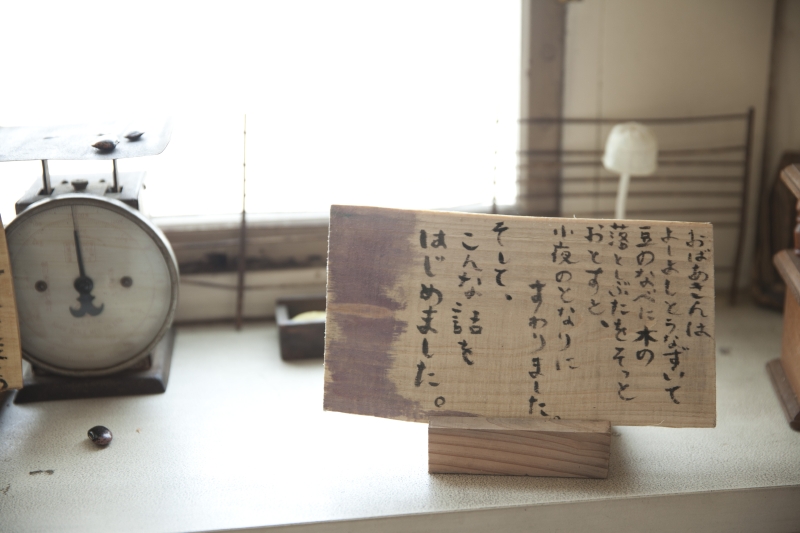 おばあさんは
よしよしとうなずいて
豆のなべに木の
落としぶたをそっと
おとすと、
小夜のとなりに
すわりました。
そして、
こんな話を
はじめました。